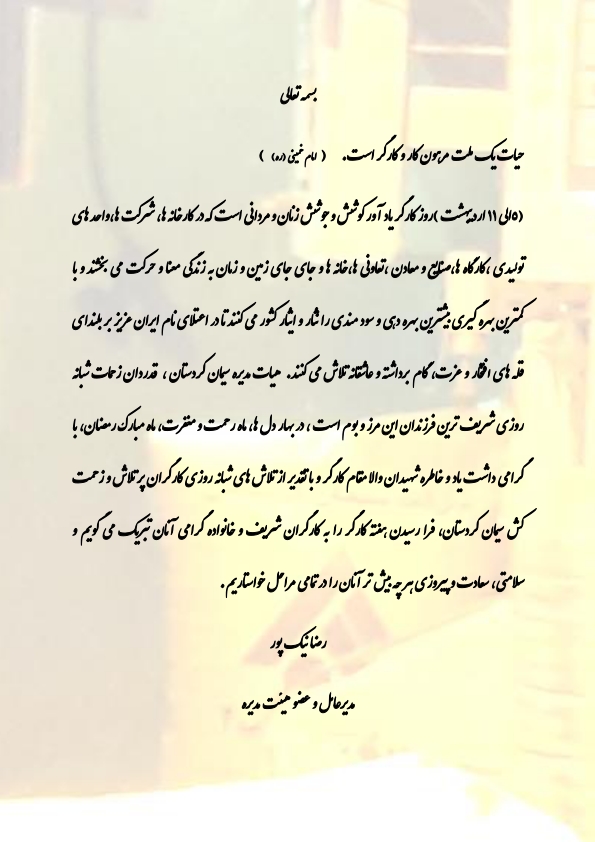 بسمه تعالی
حیات یک ملت مرهون کار و کارگر است. ( امام خمینی (ره) )
(۵الی ۱۱ اردیبهشت )روز کارگر یاد آور کوشش و جوشش زنان و مردانی است که در کارخانه ها، شرکت ها،واحد های
تولیدی ،کارگاه ها،صنایع و معادن ،تعاونی ها،خانه ها و جای جای زمین و زمان به زندگی معنا و حرکت می بخشند و با
کمترین بهره گیری بیشترین بهره دهی و سود مندی را نثار و ایثار کشور می کنند تا در اعتلای نام ایران عزیز بر بلندای
قله های افتخار و عزت، گام برداشته و عاشقانه تلاش می کنند. هیات مدیره سیمان کردستان ، قدردان زحمات شبانه
روزی شریف ترین فرزندان این مرز و بوم است ، در بهار دل ها، ماه رحمت و مغفرت، ماه مبارک رمضان، با
گرامی داشت یاد و خاطره شهیدان والا مقام کارگر و با تقدیر از تلاش های شبانه روزی کارگران پر تلاش و زحمت
کش سیمان کردستان، فرا رسیدن هفته کارگر را به کارگران شریف و خانواده گرامی آنان تبریک می گویم و
سلامتی، سعادت و پیروزی هر چه بیش تر آنان را در تمامی مراحل خواستاریم .
رضا نیک پور
مدیرعامل و عضو هیئت مدیره